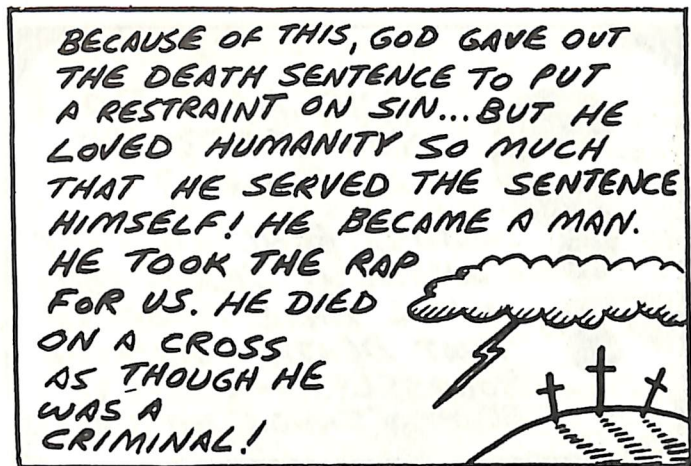 BECAUSE OF THIS, GOD GAVE OUT
THE DEATH SENTENCE TO PUT
A RESTRAINT ON SIN...BUT HE
LOVED HUMANITY SO MUCH
THAT HE SERVED THE SENTENCE
HIMSELF! HE BECAME A MAN.
HE TOOK THE RAP
FOR US. HE DIED
ON A CROSS
AS THOUGH HE
WAS A
CRIMINAL!